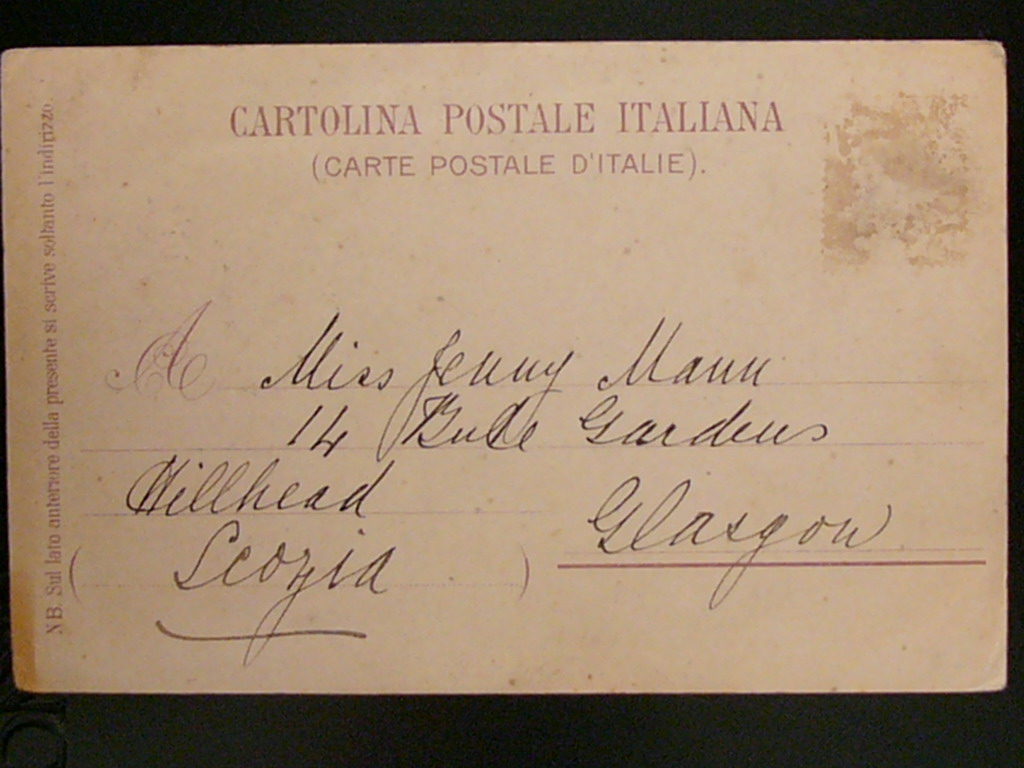 CARTOLINA POSTALE ITALIANA
(CARTE POSTALE D'ITALIE).
NB. Sul lato anteriore della presente si scrive soltanto l'indirizzo.
A Miss Jenny Mann
14 Bute Gardens
Hillhead
Glasgow
(Scozia)